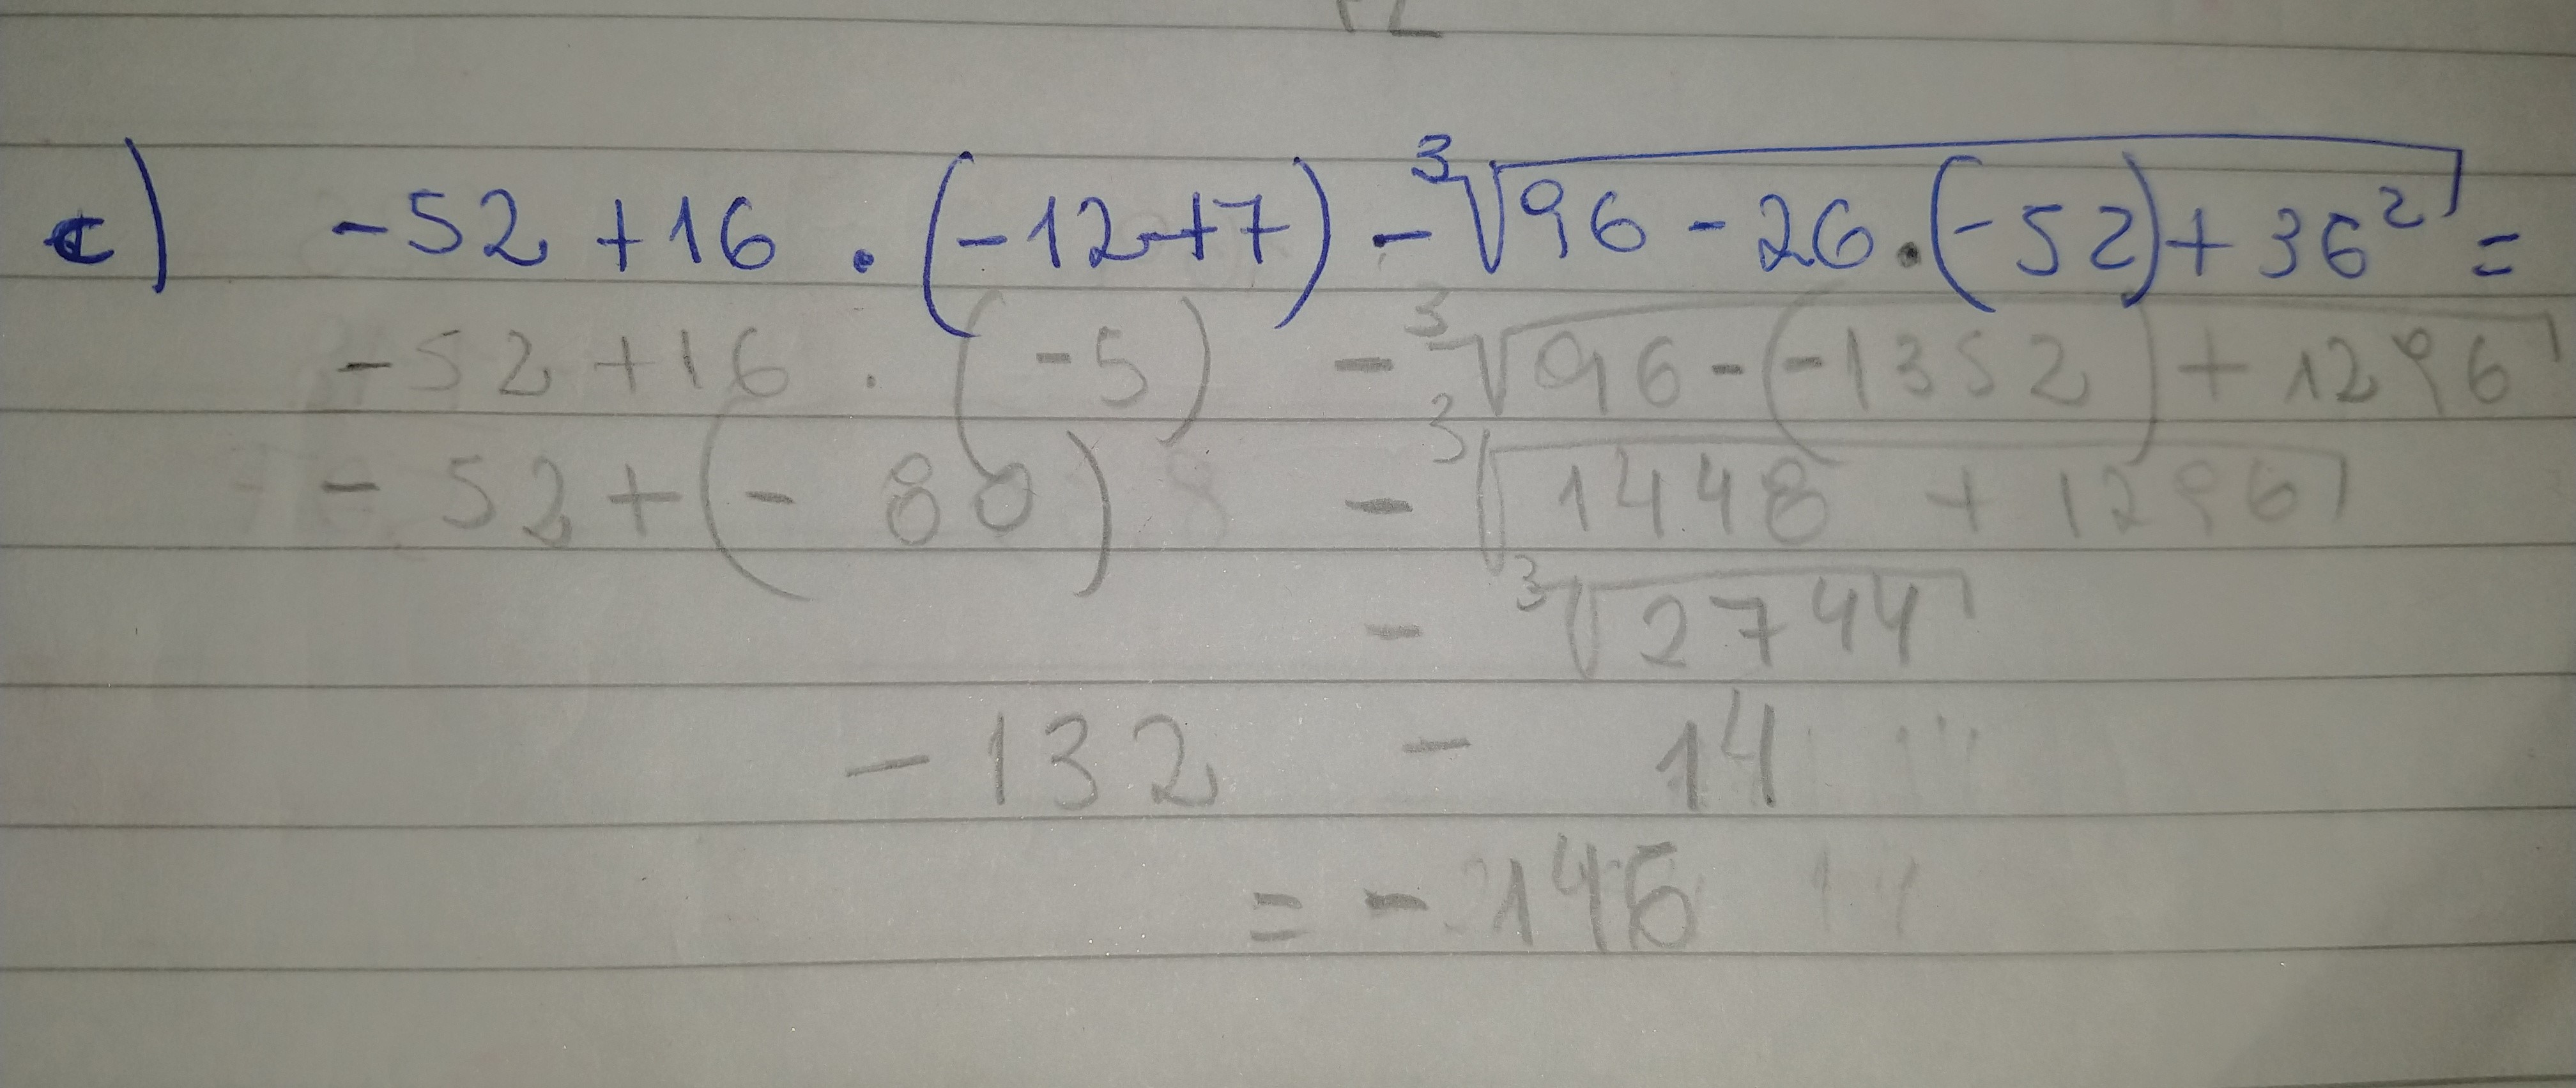 c) -52 + 16 · (-12+7) - ³√(96 - 26 · (-52) + 36²) =
-52 + 16 · (-5) - ³√(96 - (-1352) + 1296)
-52 + (-80) - ³√(1448 + 1296)
- ³√2744
-132 - 14
= -146